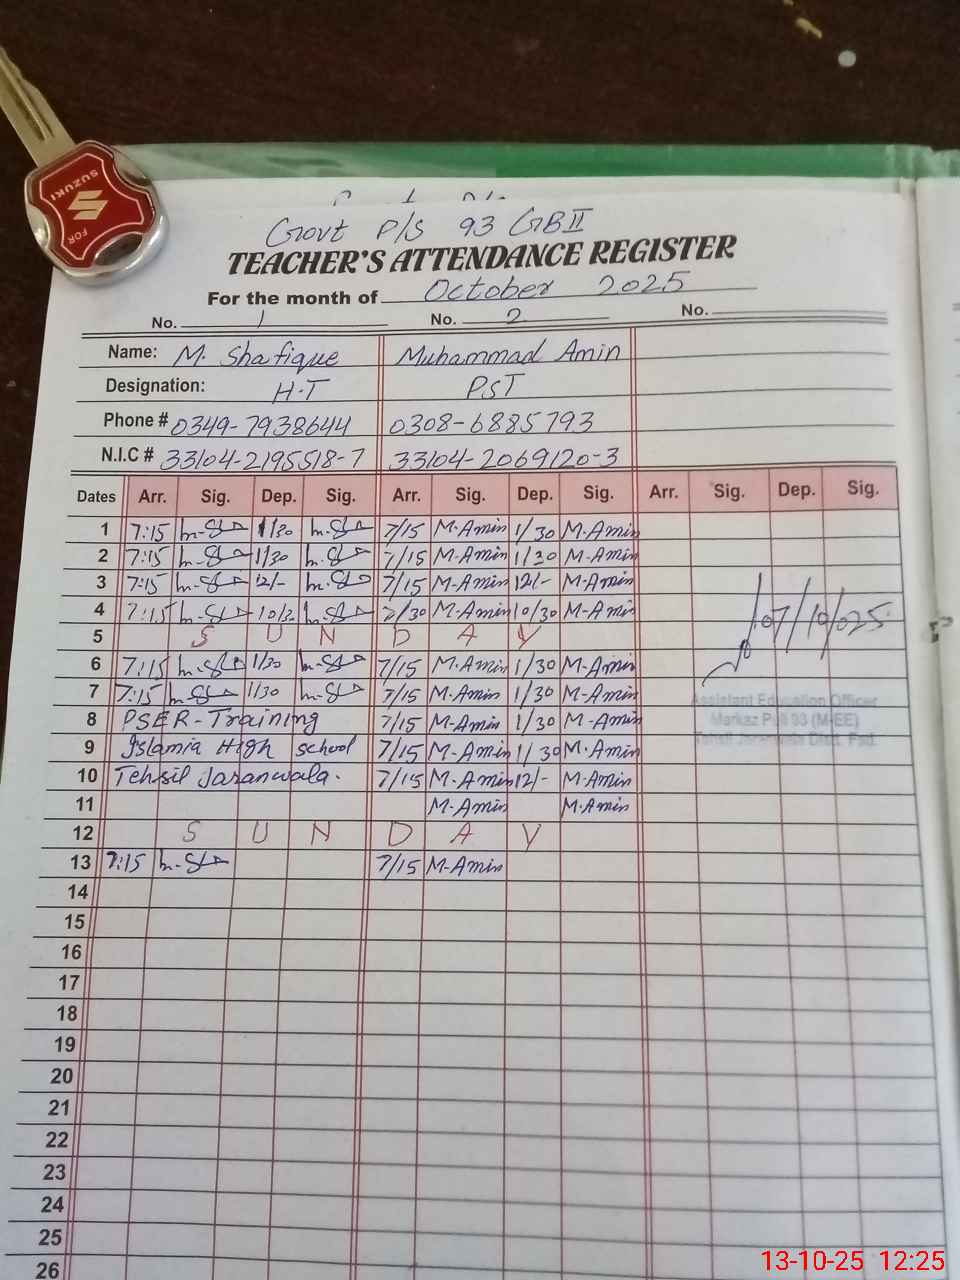 SUZUKI
FOR
Govt P/S 93 GB II
TEACHER'S ATTENDANCE REGISTER
For the month of October 2025
No. 1 No. 2 No.
Name: M. Shafique Muhammad Amin
Designation: H.T PST
Phone # 0349-7938644 0308-6885793
N.I.C # 33104-2195518-7 33104-2069120-3
Dates Arr. Sig. Dep. Sig. Arr. Sig. Dep. Sig. Arr. Sig. Dep. Sig.
1 7:15 1/30 7/15 M.Amin 1/30 M.Amin
2 7:15 1/30 7/15 M-Amin 1/30 M-Amin
3 7:15 12/- 7/15 M-Amin 12/- M-Amin
4 7:15 10/30 7/30 M-Amin 10/30 M-Amin
5 S U N D A Y
6 7:15 1/30 7/15 M.Amin 1/30 M-Amin
7 7:15 1/30 7/15 M-Amin 1/30 M-Amin
8 PSER-Training 7/15 M-Amin 1/30 M-Amin
9 Islamia High school 7/15 M-Amin 1/30 M.Amin
10 Tehsil Jaranwala. 7/15 M-Amin 12/- M-Amin
11 M-Amin M-Amin
12 S U N D A Y
13 7:15 7/15 M-Amin
14
15
16
17
18
19
20
21
22
23
24
25
26
07/10/025
Assistant Education Officer
Markaz Pull 93 (M-EE)
Tehsil Jaranwala Distt. Fsd.
13-10-25 12:25